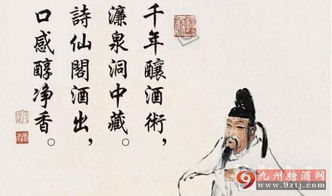 千年釀酒術，
濂泉洞中藏。
詩仙閣酒出，
口感醇净香。
九州糖酒网
www.9ztj.com